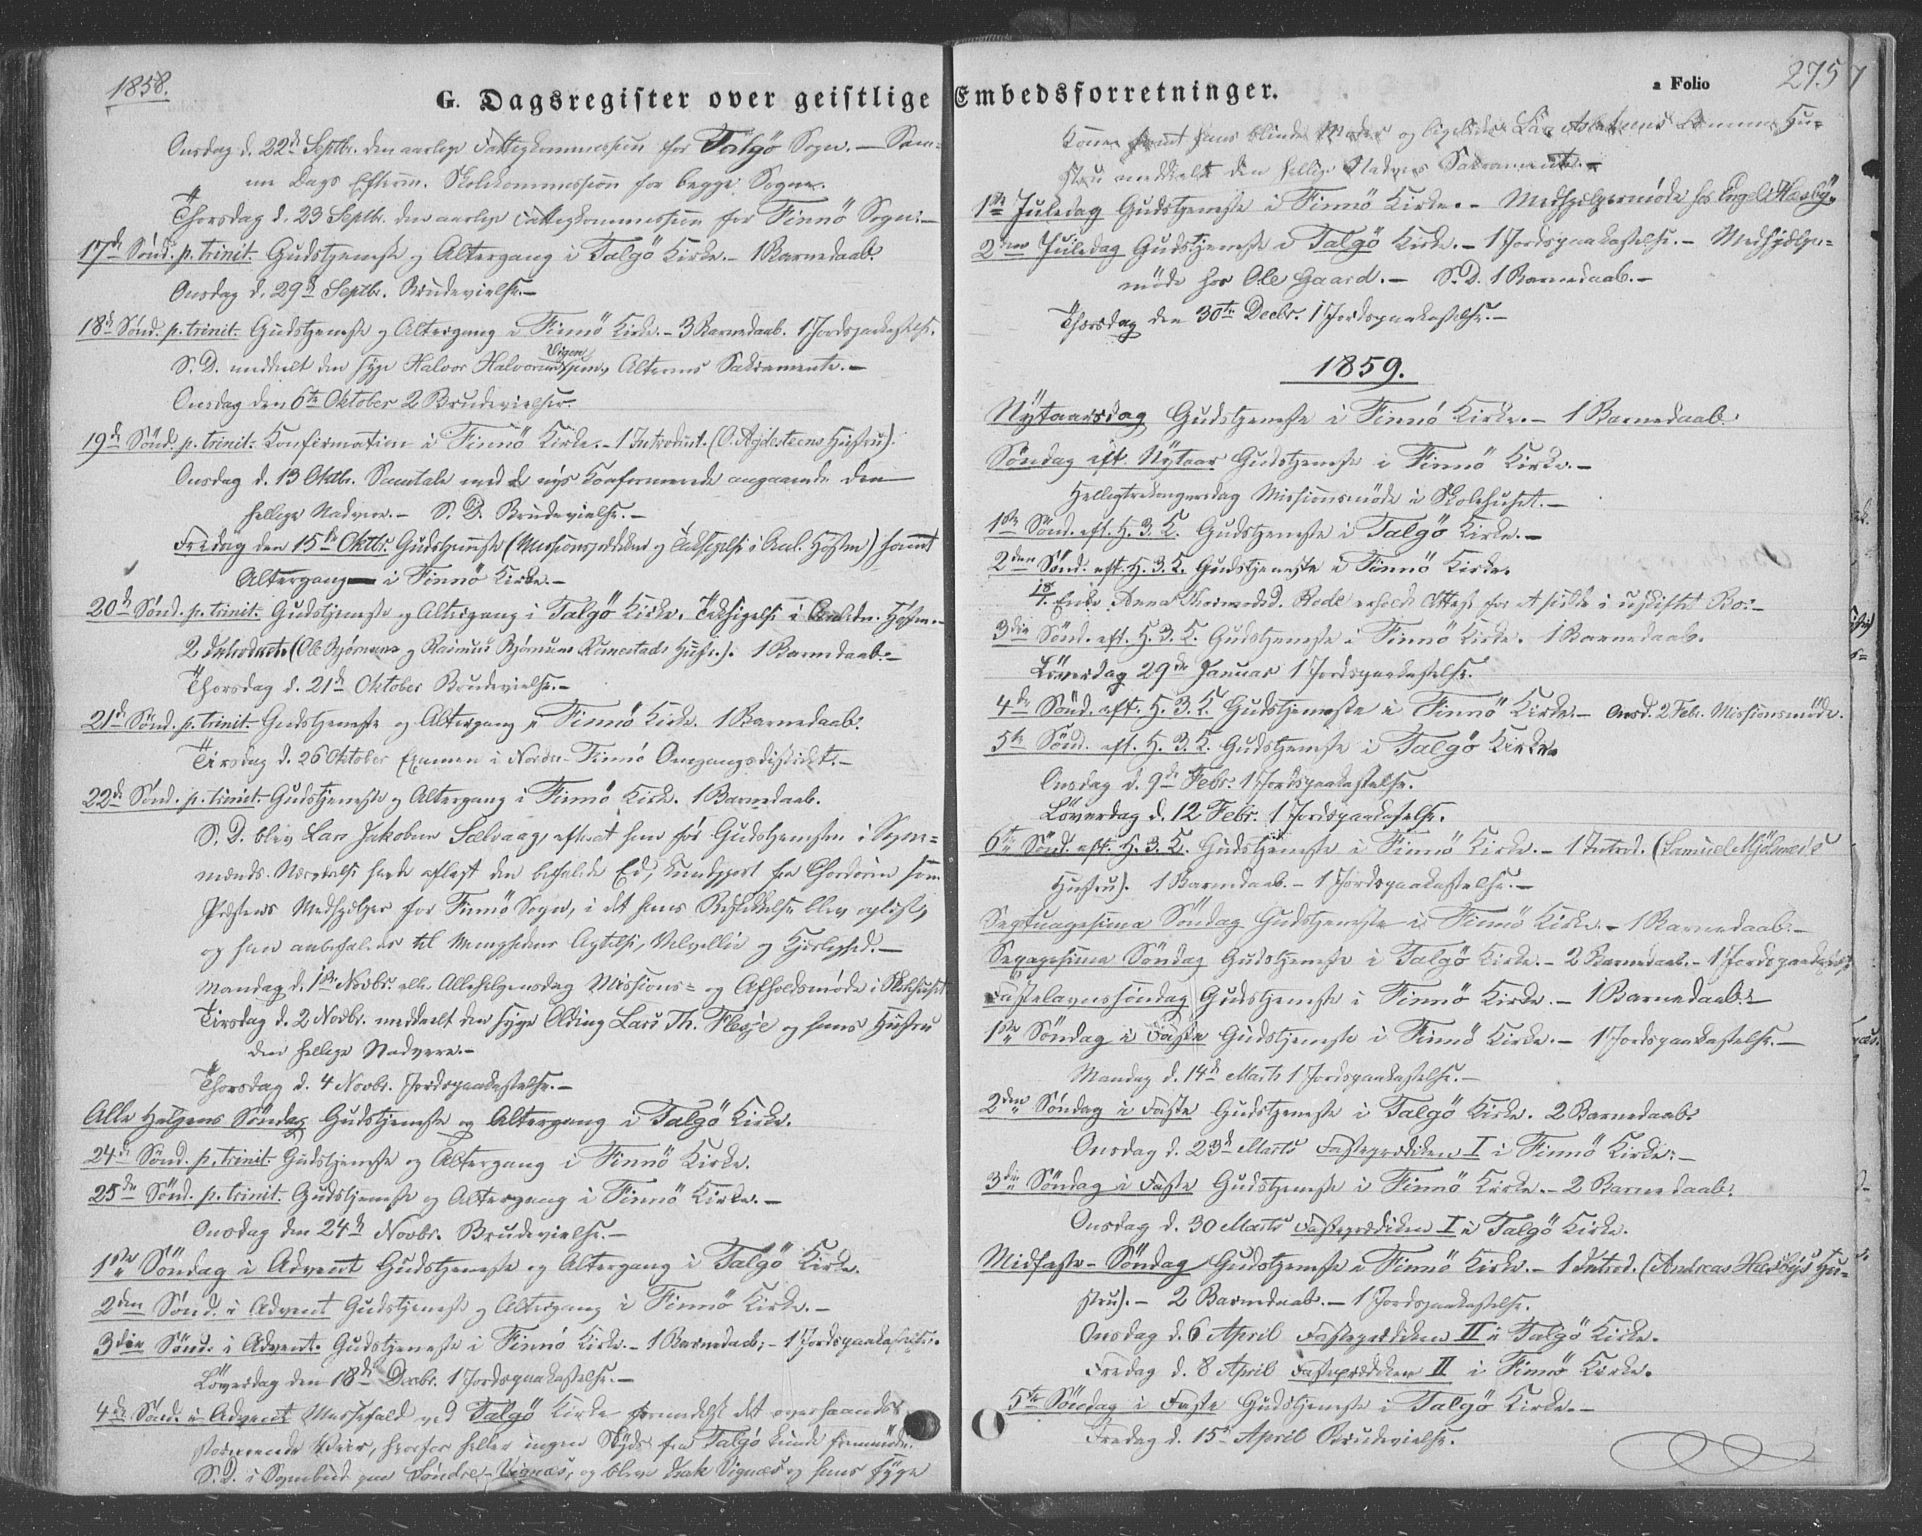 1858.
G. Dagsregister over geistlige
Onsdag d. 22de Septbr. den aarlige Fattigkommission for Talgö Sogn. — Sam-
me Dags Efterm. Skolekommission for begge Sogne.
Thorsdag d. 23 Septb. den aarlige Fattigkommission for Finnö Sogn. —
17de Sönd. p. trinit. Gudstjeneste og Altergang i Talgö Kirke. — 1 Barnedaab.
Onsdag d. 29de Septbr. Brudevielse. —
18de Sönd. p. trinit. Gudstjeneste og Altergang i Finnö Kirke. — 3 Barnedaab. 1 Jordspaakastelse.
S. D. meddeelt den syge Halvor Halvorsen Vigen Alterens Sakramente. —
Onsdag den 6te Oktober 2 Brudevielser.
19de Sönd. p. trinit. Konfirmation i Finnö Kirke. — 1 Introduct. (O. Ryldesteens Hustru).
Onsdag d. 13 Oktbr. Samtale med de nys Konfirmerede angaaende den
hellige Nadver. — S. D. Brudevielse. —
Fredag den 15de Oktbr. Gudstjeneste (Missionsprædiken og Taksigelse i Anl. Høsten) samt
Altergang i Finnö Kirke. —
20de Sönd. p. trinit. Gudstjeneste og Altergang i Talgö Kirke. Taksigelse i Anledn. Høsten. —
2 Introducte (Ole Bjørnsens og Rasmus Bjørnsens Reimestads Hustr.). 1 Barnedaab. —
Thorsdag d. 21de Oktober Brudevielse. —
21de Sönd. p. trinit. Gudstjeneste og Altergang i Finnö Kirke. 1 Barnedaab.
Tirsdag d. 26 Oktober Examen i Nordre-Finnö Omgangsdistrikt. —
22de Sönd. p. trinit. Gudstjeneste og Altergang i Finnö Kirke. 1 Barnedaab.
S. D. blev Lars Jakobsen Sælvaag, efterat han før Gudstjenesten i Sogne-
mænds Nærværelse havde aflagt den befalede Ed, som
Præstens Medhjælper for Finnö Sogn, i det hans Beskikkelse blev oplæst,
og han anbefales til Menighedens Agtelse, Velvillie og Kjærlighed. —
Mandag d. 1ste Novbr. eller Allehelgensdag Missions- og Afholdsmøde i Skolehuset
Tirsdag d. 2 Novbr. meddeelt den syge Olding Lars Th. Flesje og hans Hustru
den hellige Nadvere. —
Thorsdag d. 4 Novbr. Jordspaakastelse. —
Alle Helgens Söndag Gudstjeneste og Altergang i Talgö Kirke.
24de Sönd. p. trinit. Gudstjeneste og Altergang i Finnö Kirke.
25de Sönd. p. trinit. Gudstjeneste og Altergang i Finnö Kirke. —
Onsdag den 24de Novbr. Brudevielse. —
1ste Söndag i Advent Gudstjeneste og Altergang i Talgö Kirke.
2den Sönd. i Advent Gudstjeneste og Altergang i Finnö Kirke. —
3die Sönd. i Advent. Gudstjeneste i Finnö Kirke. — 1 Barnedaab; — 1 Jordspaakastelse.
Löverdag den 18de Decbr. 1 Jordspaakastelse. —
4de Sönd. i Advent Messefald ved Talgö Kirke formedelst det overhaands
stormende Veir, hvorfor heller ingen Skyds fra Talgö kunde fremmøde.
S. D. i Sognebud paa Søndre-Vignæs, og blev Isak Vignæs og hans syge
Embedsforretninger.
a Folio 275
Kone samt hans blinde Moder og ligeledes Hu-
stru meddeelt den hellige Nadvers Sakramente. —
1ste Juledag Gudstjeneste i Finnö Kirke. — Medhjelpermøde hos Engel Hauby.
2den Juledag Gudstjeneste i Talgö Kirke. — 1 Jordspaakastelse. — Medhjelper-
møde hos Ole Gaard. — S. D. 1 Barnedaab. —
Thorsdag den 30te Decbr. 1 Jordspaakastelse. —
1859.
Nytaarsdag Gudstjeneste i Finnö Kirke. — 1 Barnedaab.
Söndag eft. Nytaar Gudstjeneste i Finnö Kirke. —
Helligtrekongersdag Missionsmöde i Skolehuset. —
1ste Sönd. eft. H. 3. K. Gudstjeneste i Talgö Kirke. —
2den Sönd. eft. H. 3. K. Gudstjeneste i Finnö Kirke.
18/1. Enke Anna Thormodsd. Bøde erholdt Attest for at sidde i uskiftet Bo. —
3die Sönd. eft. H. 3. K. Gudstjeneste i Finnö Kirke. 1 Barnedaab.
Löverdag 29de Januar 1 Jordspaakastelse.
4de Sönd. eft. H. 3. K. Gudstjeneste i Finnö Kirke. — Onsd. 2 Febr. Missionsmöde.
5te Sönd. eft. H. 3. K. Gudstjeneste i Talgö Kirke.
Onsdag d. 9de Febr. 1 Jordspaakastelse.
Löverdag d. 12 Febr. 1 Jordspaakastelse.
6te Sönd. eft. H. 3. K. Gudstjeneste i Finnö Kirke. — 1 Introd. (Samuel Mjölsnæs's
Hustru). 1 Barnedaab. — 1 Jordspaakastelse. —
Septuagesima Söndag Gudstjeneste i Finnö Kirke. — 1 Barnedaab. —
Sexagesima Söndag Gudstjeneste i Talgö Kirke. — 2 Barnedaab. — 1 Jordspaakast.
Fastelavnssöndag Gudstjeneste i Finnö Kirke. — 1 Barnedaab. —
1ste Söndag i Faste Gudstjeneste i Finnö Kirke. — 1 Jordspaakastelse. —
Mandag d. 14de Marts 1 Jordspaakastelse. —
2den Söndag i Faste Gudstjeneste i Talgö Kirke. 2 Barnedaab.
Onsdag d. 23de Marts Fasteprædiken I i Finnö Kirke. —
3die Söndag i Faste Gudstjeneste i Finnö Kirke. — 2 Barnedaab.
Onsdag d. 30 Marts Fasteprædiken I i Talgö Kirke.
Midfaste-Söndag Gudstjeneste i Finnö Kirke. — 1 Introd. (Andreas Hesbys Hu-
stru). — 2 Barnedaab. — 1 Jordspaakastelse.
Onsdag d. 6 April Fasteprædiken II i Talgö Kirke.
Fredag d. 8 April Fasteprædiken II i Finnö Kirke.
5te Söndag i Faste Gudstjeneste i Talgö Kirke. —
Fredag d. 15de April Brudevielse.